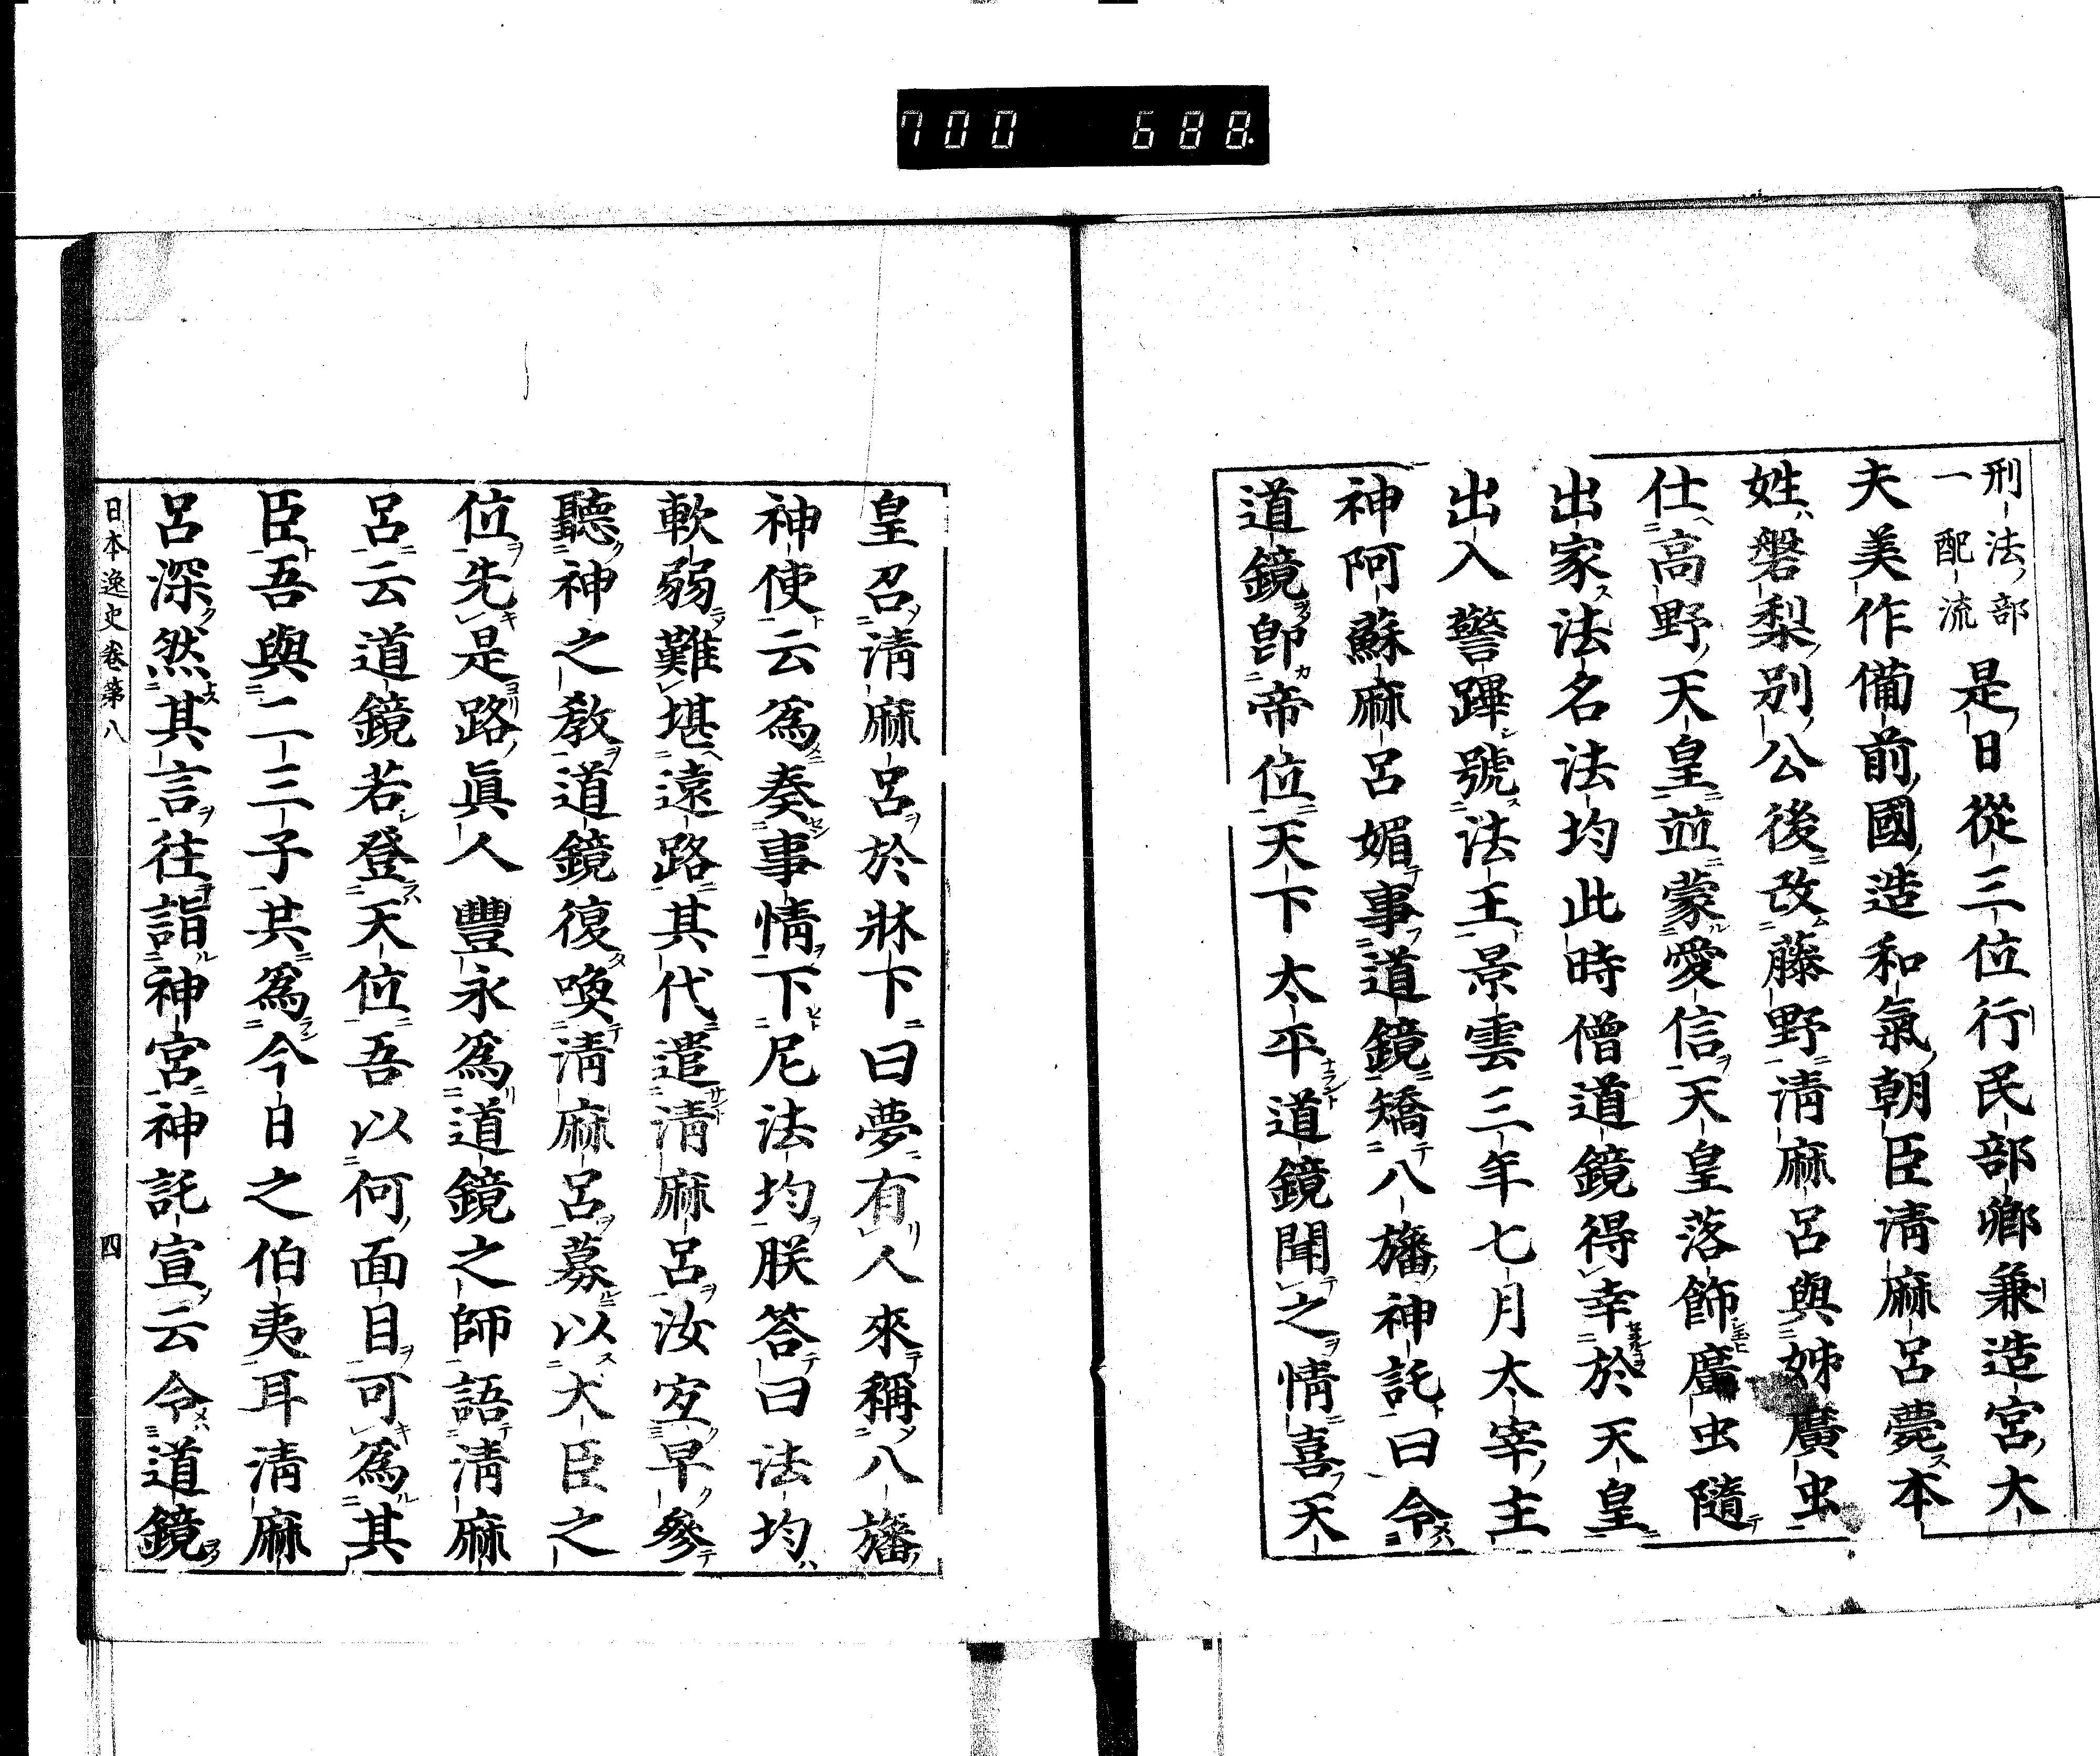 700 688.
刑法部
一配流
是日從三位行民部卿兼造宮大
夫美作備前國造和氣朝臣淸麻呂薨本
姓磐梨別公後改藤野淸麻呂與姊廣虫
仕高野天皇並蒙愛信天皇落飾廣虫隨
出家法名法均此時僧道鏡得幸於天皇
出入警蹕號法王景雲三年七月太宰主
神阿蘇麻呂媚事道鏡矯八旛神託曰令
道鏡卽帝位天下太平道鏡聞之情喜天
皇召淸麻呂於牀下曰夢有人來稱八旛
神使云爲奏事情下尼法均朕答曰法均
軟弱難堪遠路其代遣淸麻呂汝宜早參
聽神之敎道鏡復喚淸麻呂募以大臣之
位先是路眞人豐永爲道鏡之師語淸麻
呂云道鏡若登天位吾以何面目可爲其
臣吾與二三子共爲今日之伯夷耳淸麻
呂深然其言往詣神宮神託宣云令道鏡
日本逸史卷第八 四